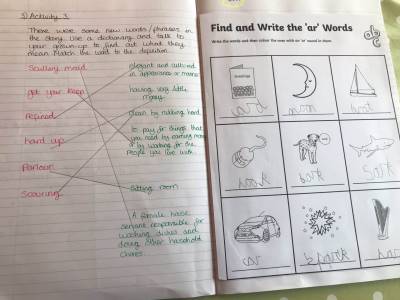 3) Activity 3.
There were some new words/phrases in
the story. Use a dictionary and talk to
your grown-up to find out what they
mean. Match the word to the definition.
Scullery maid
elegant and cultured
in appearance or manner
get your keep
having very little
money.
Refined
clean by rubbing hard
hard up
to pay for things that
you need by earning money
or by working for the
people you live with.
Parlour
Scouring
Sitting room
A female house
servant responsible for
washing dishes and
doing other household
chores.
Find and Write the 'ar' Words
ar
Write the words and then colour the ones with an 'ar' sound in them.
moon
boat
bark
car
spark